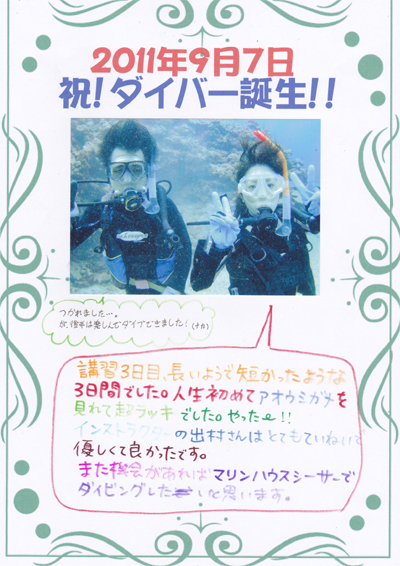 2011年9月7日
祝！ダイバー誕生！！
つかれました…。
が、後半は楽しんでダイブできました！(ナカ)
講習3日目、長いようで短かったような
3日間でした。人生初めてアオウミガメを
見れて超ラッキーでした。やったー！！
インストラクターの出村さんはとてもていねいで
優しくて良かったです。
また機会があればマリンハウスシーサーで
ダイビングしたいと思います。